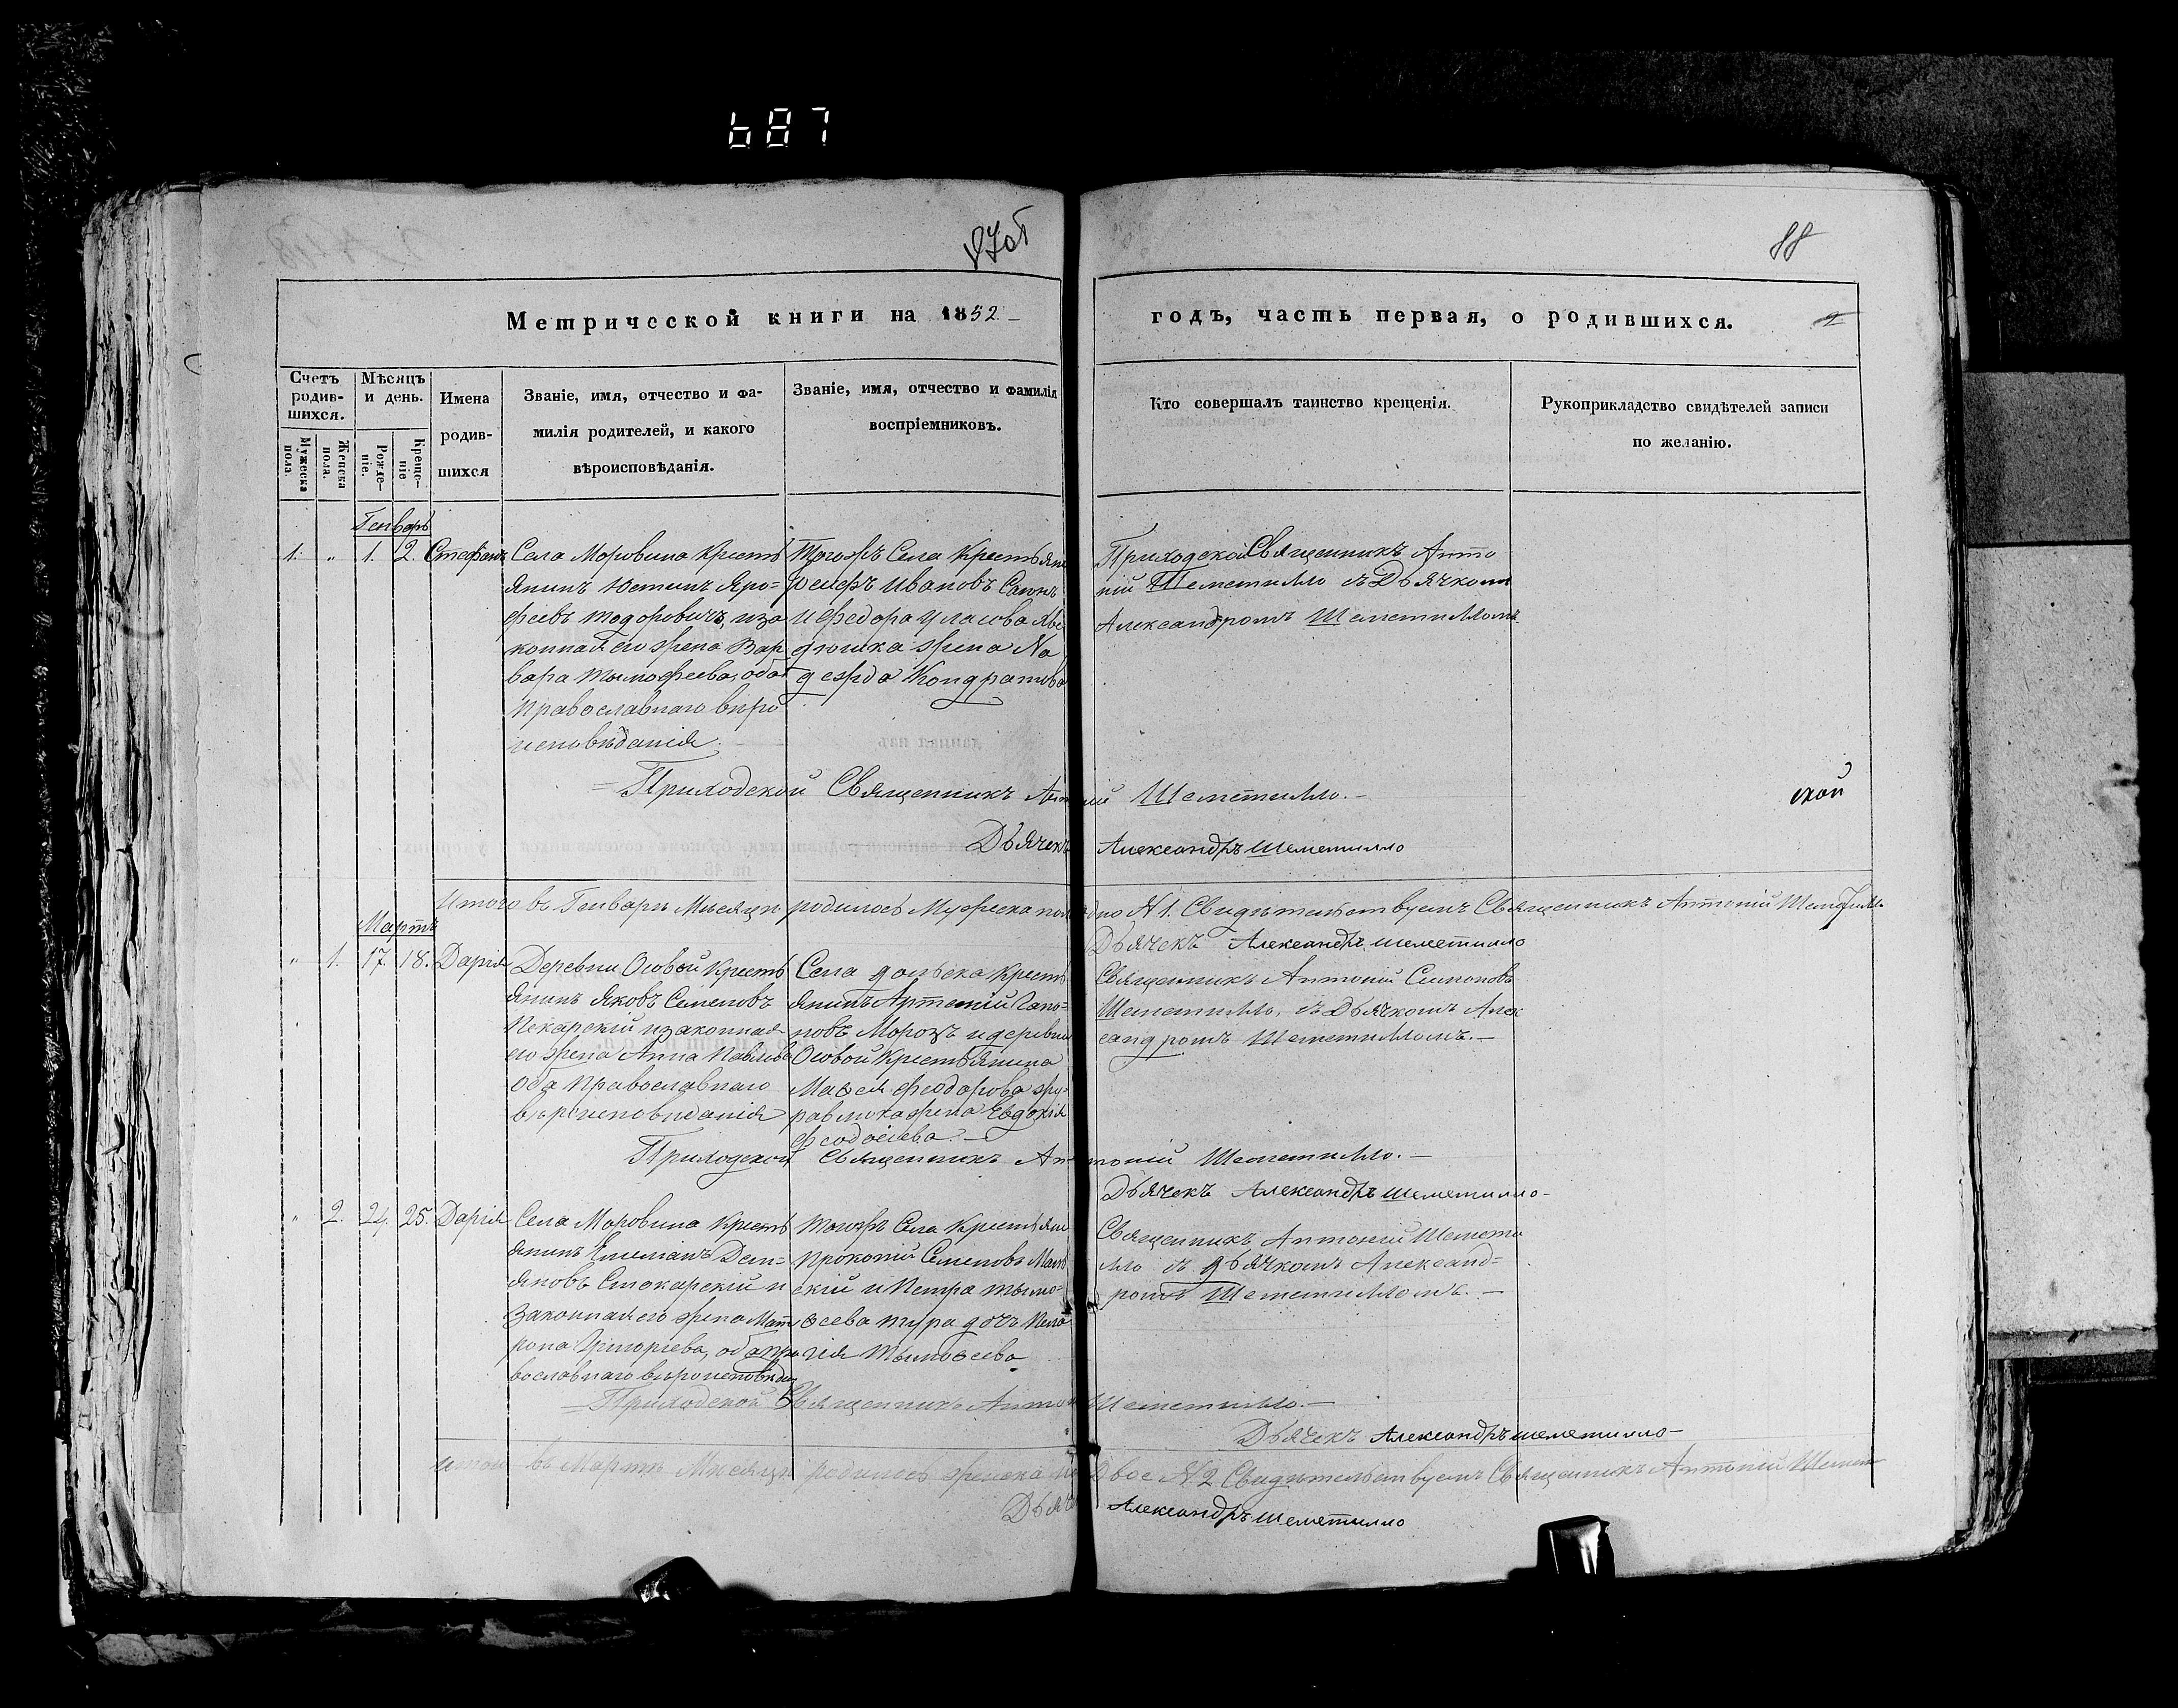 687
87об
88
Метрической книги на 1852
годъ, часть первая, о родившихся.
Счетъ родив-шихся.
Мужеска пола.
Женска пола.
Мѣсяцъ и день.
Рожде-ніе.
Креще-ніе
Имена
родив-
шихся
Званіе, имя, отчество и фа-
милія родителей, и какого
вѣроисповѣданія.
Званіе, имя, отчество и фамилія
воспріемниковъ.
Кто совершалъ таинство крещенія.
Рукоприкладство свидѣтелей записи
по желанію.
Генварь
1. " 1. 2. Стефанъ
Села Моровина Кресть
янинъ Юстинъ Яро=
феевъ Тодоровичъ, и за
конная его жена Вар
вара Тымофеева, оба
православнаго вѣро
исповѣданія.
Тогожъ Села Крестьяни
Іосифъ Ивановъ
и Федора Уласова
жена На
дежда Кондратова
Приходской Священникъ Анто
ній Шеметилло съ Дьячкомъ
Александромъ Шеметилломъ
Приходской Священникъ Антоній Шеметилло.
ской
Дьячекъ Александръ Шеметилло
Итого въ Генварѣ Мѣсяцѣ родилось Мужеска пола одно № 1. Свидѣтельствуемъ Священникъ Антоній Шеметилло
Дьячекъ Александръ Шеметилло
Мартъ
" 1. 17. 18. Дарія
Деревни Осовой Кресть
янинъ Яковъ Семеновъ
Пекарскій и законная
его жена Анна Павлова
Оба Православнаго
вѣроисповѣданія
Села Дольска Кресть
янинъ Артемій Гапо=
новъ Морозъ и деревни
Осовой Крестьянина
Мавея Феодорова Жу-
равлюка жена Евдокія
Феодосіева.
Священникъ Антоній Симоновъ
Шеметилло, съ Дьячкомъ Алек
сандромъ Шеметилломъ.
Приходской Священникъ Антоній Шеметилло.
Дьячекъ Александръ Шеметилло
" 2. 24. 25. Дарія
Села Моровина Кресть
янинъ Емеліанъ Деми=
яновъ Стокарскій и
законная его жена Мат
рона Григоріева, оба пра
вославнаго вѣроисповѣдан
Тогожъ Села Крестьяни
Прокопій Семеновъ
скій и Петра Тымо=
ѳеева дочь Пела
гія Тымоѳеева
Священникъ Антоній Шемети
лло съ Дьячкомъ Александ=
ромъ Шеметилломъ.
Приходской Священникъ Антоній Шеметилло.
Дьячекъ Александръ Шеметилло
Итого въ Мартѣ Мѣсяцѣ родилось женска пола Двое № 2 Свидѣтельствуемъ Священникъ Антоній Шемети
Дьячекъ Александръ Шеметилло